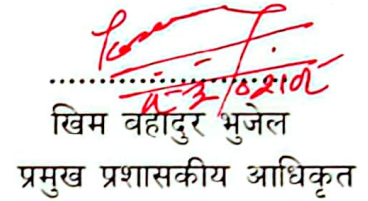 ....................
खिम वहादुर भुजेल
प्रमुख प्रशासकीय आधिकृत